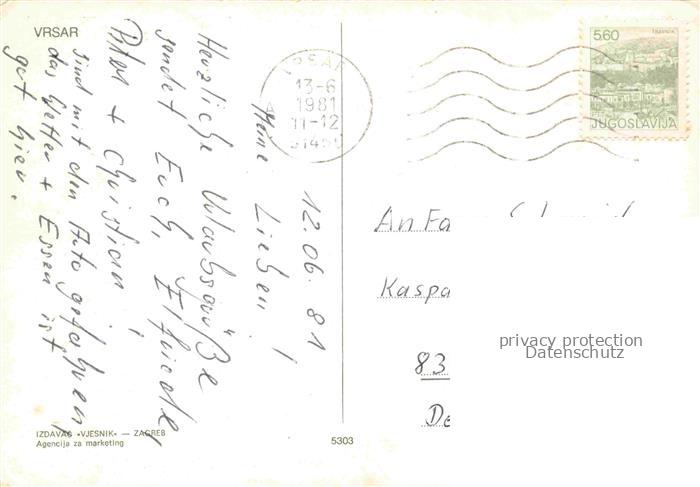 VRSAR
VRSAR
13-6
1981
11-12
51450
5.60
TRAVNIK
JUGOSLAVIJA
12.06.81
Meine Lieben!
Herzliche Urlaubsgrüße
sendet Euch, Elfriede,
Peter + Christian!
sind mit dem Auto gefahren,
das Wetter + Essen ist
gut hier.
An Fa
Kaspa
83
De
privacy protection
Datenschutz
IZDAVAČ «VJESNIK» — ZAGREB
Agencija za marketing
5303